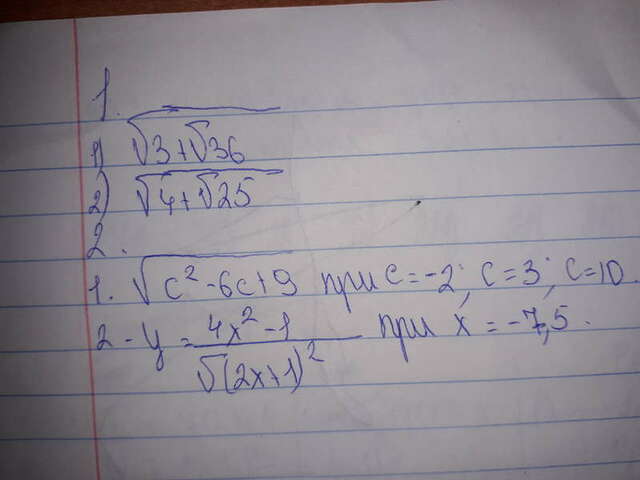 1.
1) √(3+√36)
2) √(4+√25)
2.
1. √(c²-6c+9) при c=-2; c=3; c=10.
2 - y = (4x²-1)/√(2x+1)² при x = -7,5.